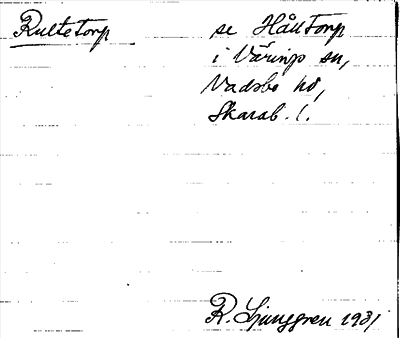 Rultetorp
se Hålltorp
i Värings sn,
Vadsbo hd,
Skarab. l.
R. Ljunggren 1931